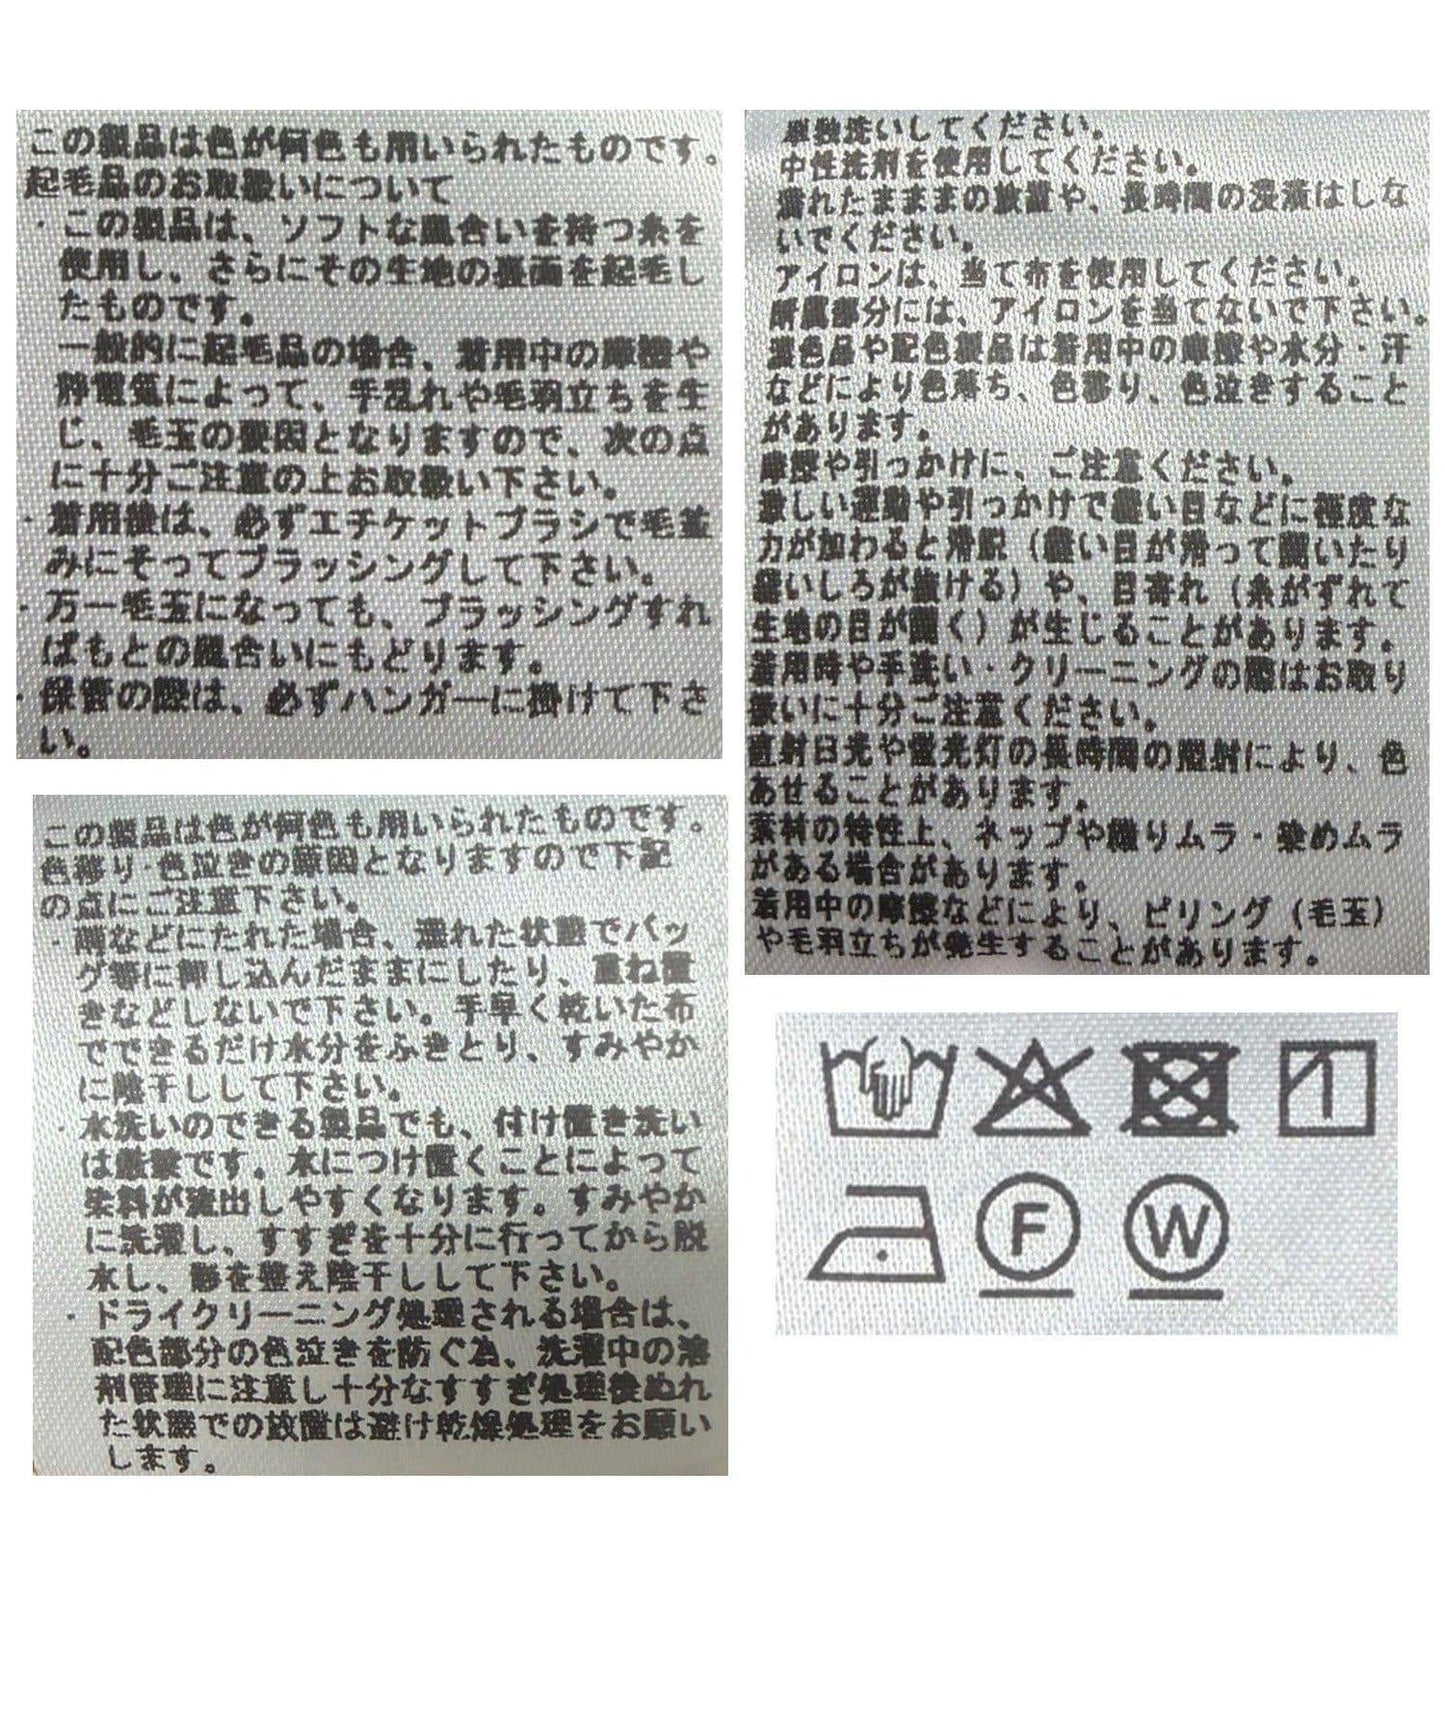 この製品は色が何色も用いられたものです。
起毛品のお取扱いについて
・この製品は、ソフトな風合いを持つ糸を
使用し、さらにその生地の裏面を起毛し
たものです。
一般的に起毛品の場合、着用中の摩擦や
静電気によって、手乱れや毛羽立ちを生
じ、毛玉の要因となりますので、次の点
に十分ご注意の上お取扱い下さい。
・着用後は、必ずエチケットブラシで毛並
みにそってブラッシングして下さい。
・万一毛玉になっても、ブラッシングすれ
ばもとの風合いにもどります。
・保管の際は、必ずハンガーに掛けて下さ
い。
この製品は色が何色も用いられたものです。
色移り・色泣きの原因となりますので下記
の点にご注意下さい。
・雨などにぬれた場合、濡れた状態でバッ
グ等に押し込んだままにしたり、重ね置
きなどしないで下さい。手早く乾いた布
でできるだけ水分をふきとり、すみやか
に陰干しして下さい。
・水洗いのできる製品でも、付け置き洗い
は厳禁です。水につけ置くことによって
染料が流出しやすくなります。すみやか
に洗濯し、すすぎを十分に行ってから脱
水し、形を整え陰干しして下さい。
・ドライクリーニング処理される場合は、
配色部分の色泣きを防ぐ為、洗濯中の溶
剤管理に注意し十分なすすぎ処理後ぬれ
た状態での放置は避け乾燥処理をお願い
します。
単独洗いしてください。
中性洗剤を使用してください。
濡れたままの放置や、長時間の浸漬はしな
いでください。
アイロンは、当て布を使用してください。
附属部分には、アイロンを当てないで下さい。
濃色品や配色製品は着用中の摩擦や水分・汗
などにより色落ち、色移り、色泣きすること
があります。
摩擦や引っかけに、ご注意ください。
激しい運動や引っかけで縫い目などに極度な
力が加わると滑脱（縫い目が滑って開いたり
縫いしろが抜ける）や、目寄れ（糸がずれて
生地の目が開く）が生じることがあります。
着用時や手洗い・クリーニングの際はお取り
扱いに十分ご注意ください。
直射日光や蛍光灯の長時間の照射により、色
あせることがあります。
素材の特性上、ネップや織りムラ・染めムラ
がある場合があります。
着用中の摩擦などにより、ピリング（毛玉）
や毛羽立ちが発生することがあります。
F W